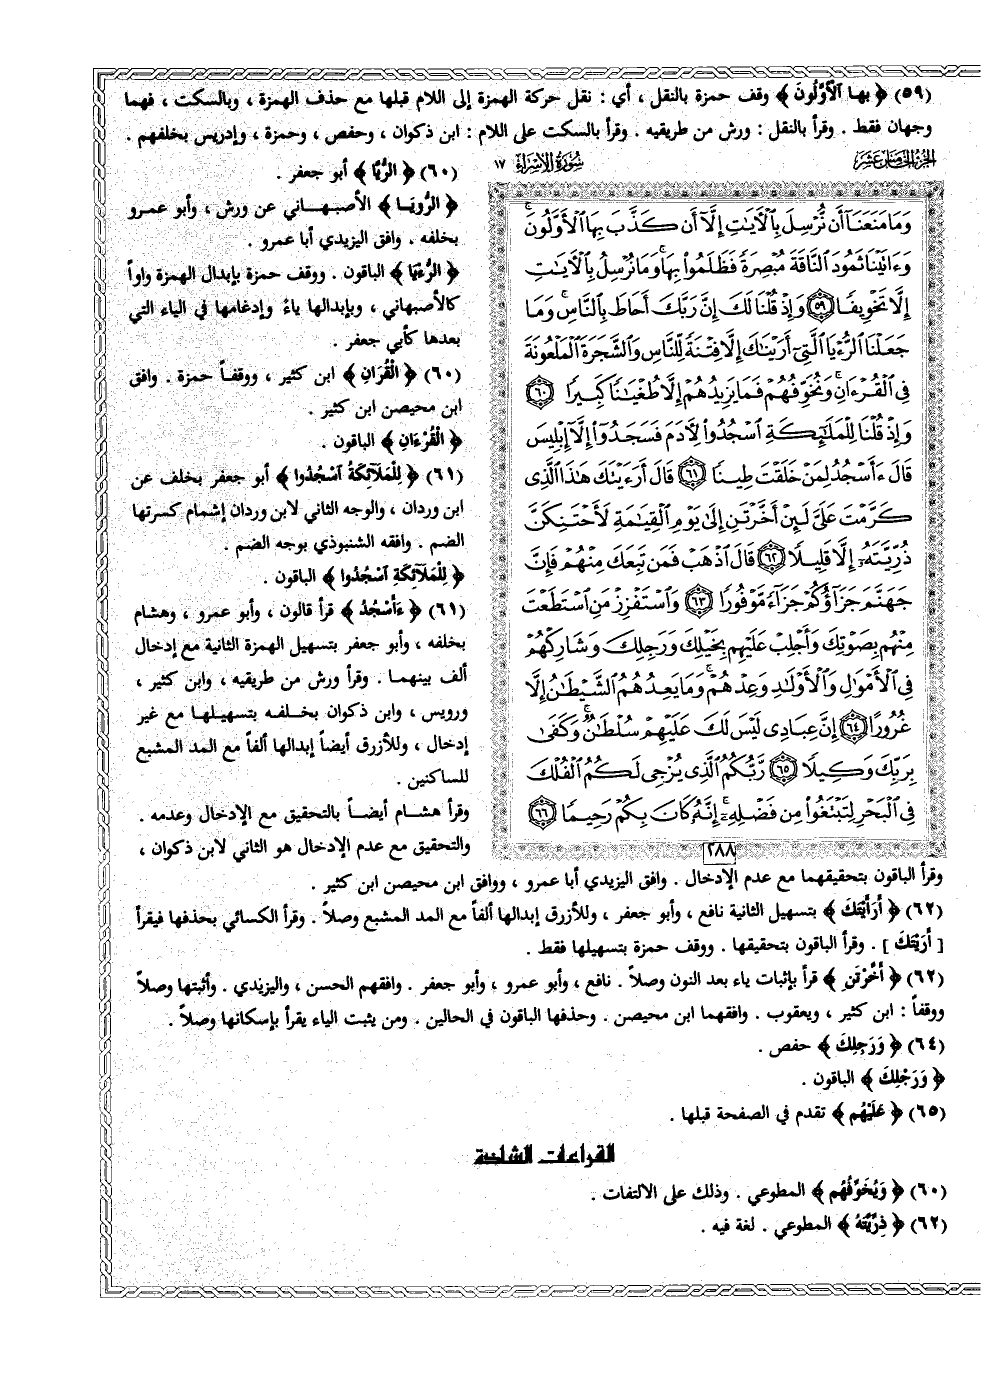 (٥٩) ﴿ بِهَا ٱلْأَوَّلُونَ ﴾ وقف حمزة بالنقل ، أي : نقل حركة الهمزة إلى اللام قبلها مع حذف الهمزة ، وبالسكت ، فهما
وجهان فقط . وقرأ بالنقل : ورش من طريقيه . وقرأ بالسكت على اللام : ابن ذكوان ، وحفص ، وحمزة ، وإدريس بخلفهم .
الجزء الخامس عشر
سورة الإسراء ١٧
وَمَا مَنَعَنَآ أَن نُّرْسِلَ بِٱلْأٓيَٰتِ إِلَّآ أَن كَذَّبَ بِهَا ٱلْأَوَّلُونَ ۚ
وَءَاتَيْنَا ثَمُودَ ٱلنَّاقَةَ مُبْصِرَةً فَظَلَمُوا۟ بِهَا ۚ وَمَا نُرْسِلُ بِٱلْأٓيَٰتِ
إِلَّا تَخْوِيفًا ٥٩ وَإِذْ قُلْنَا لَكَ إِنَّ رَبَّكَ أَحَاطَ بِٱلنَّاسِ ۚ وَمَا
جَعَلْنَا ٱلرُّءْيَا ٱلَّتِىٓ أَرَيْنَٰكَ إِلَّا فِتْنَةً لِّلنَّاسِ وَٱلشَّجَرَةَ ٱلْمَلْعُونَةَ
فِى ٱلْقُرْءَانِ ۚ وَنُخَوِّفُهُمْ فَمَا يَزِيدُهُمْ إِلَّا طُغْيَٰنًا كَبِيرًا ٦٠
وَإِذْ قُلْنَا لِلْمَلَٰٓئِكَةِ ٱسْجُدُوا۟ لِأٓدَمَ فَسَجَدُوٓا۟ إِلَّآ إِبْلِيسَ
قَالَ ءَأَسْجُدُ لِمَنْ خَلَقْتَ طِينًا ٦١ قَالَ أَرَءَيْتَكَ هَٰذَا ٱلَّذِى
كَرَّمْتَ عَلَىَّ لَئِنْ أَخَّرْتَنِ إِلَىٰ يَوْمِ ٱلْقِيَٰمَةِ لَأَحْتَنِكَنَّ
ذُرِّيَّتَهُۥٓ إِلَّا قَلِيلًا ٦٢ قَالَ ٱذْهَبْ فَمَن تَبِعَكَ مِنْهُمْ فَإِنَّ
جَهَنَّمَ جَزَآؤُكُمْ جَزَآءً مَّوْفُورًا ٦٣ وَٱسْتَفْزِزْ مَنِ ٱسْتَطَعْتَ
مِنْهُم بِصَوْتِكَ وَأَجْلِبْ عَلَيْهِم بِخَيْلِكَ وَرَجِلِكَ وَشَارِكْهُمْ
فِى ٱلْأَمْوَٰلِ وَٱلْأَوْلَٰدِ وَعِدْهُمْ ۚ وَمَا يَعِدُهُمُ ٱلشَّيْطَٰنُ إِلَّا
غُرُورًا ٦٤ إِنَّ عِبَادِى لَيْسَ لَكَ عَلَيْهِمْ سُلْطَٰنٌ ۚ وَكَفَىٰ
بِرَبِّكَ وَكِيلًا ٦٥ رَّبُّكُمُ ٱلَّذِى يُزْجِى لَكُمُ ٱلْفُلْكَ
فِى ٱلْبَحْرِ لِتَبْتَغُوا۟ مِن فَضْلِهِۦٓ ۚ إِنَّهُۥ كَانَ بِكُمْ رَحِيمًا ٦٦
٢٨٨
(٦٠) ﴿ الرُّيَّا ﴾ أبو جعفر .
﴿ الرُّويَا ﴾ الأصبهاني عن ورش ، وأبو عمرو
بخلفه . وافق اليزيدي أبا عمرو .
﴿ الرُّءْيَا ﴾ الباقون . ووقف حمزة بإبدال الهمزة واواً
كالأصبهاني ، وبإبدالها ياءً وإدغامها في الياء التي
بعدها كأبي جعفر .
(٦٠) ﴿ الْقُرَانِ ﴾ ابن كثير ، ووقفاً حمزة . وافق
ابن محيصن ابن كثير .
﴿ الْقُرْءَانِ ﴾ الباقون .
(٦١) ﴿ لِلْمَلَآئِكَةُ ٱسْجُدُوا ﴾ أبو جعفر بخلف عن
ابن وردان ، والوجه الثاني لابن وردان إشمام كسرتها
الضم . وافقه الشنبوذي بوجه الضم .
﴿ لِلْمَلَآئِكَةِ ٱسْجُدُوا ﴾ الباقون .
(٦١) ﴿ ءَأَسْجُدُ ﴾ قرأ قالون ، وأبو عمرو ، وهشام
بخلفه ، وأبو جعفر بتسهيل الهمزة الثانية مع إدخال
ألف بينهما . وقرأ ورش من طريقيه ، وابن كثير ،
ورويس ، وابن ذكوان بخلفه بتسهيلها مع غير
إدخال ، وللأزرق أيضاً إبدالها ألفاً مع المد المشبع
للساكنين .
وقرأ هشام أيضاً بالتحقيق مع الإدخال وعدمه .
والتحقيق مع عدم الإدخال هو الثاني لابن ذكوان ،
وقرأ الباقون بتحقيقهما مع عدم الإدخال . وافق اليزيدي أبا عمرو ، ووافق ابن محيصن ابن كثير .
(٦٢) ﴿ أَرَأَيْتَكَ ﴾ بتسهيل الثانية نافع ، وأبو جعفر ، وللأزرق إبدالها ألفاً مع المد المشبع وصلاً . وقرأ الكسائي بحذفها فيقرأ
[ أَرَيْتَكَ ] . وقرأ الباقون بتحقيقها . ووقف حمزة بتسهيلها فقط .
(٦٢) ﴿ أَخَّرْتَنِ ﴾ قرأ بإثبات ياء بعد النون وصلاً . نافع ، وأبو عمرو ، وأبو جعفر . وافقهم الحسن ، واليزيدي . وأثبتها وصلاً
ووقفاً : ابن كثير ، ويعقوب . وافقهما ابن محيصن . وحذفها الباقون في الحالين . ومن يثبت الياء يقرأ بإسكانها وصلاً .
(٦٤) ﴿ وَرَجِلِكَ ﴾ حفص .
﴿ وَرَجْلِكَ ﴾ الباقون .
(٦٥) ﴿ عَلَيْهُم ﴾ تقدم في الصفحة قبلها .
القراءات الشاذة
(٦٠) ﴿ وَيُخَوِّفُهُم ﴾ المطوعي . وذلك على الالتفات .
(٦٢) ﴿ ذِرِّيَّتَهُ ﴾ المطوعي . لغة فيه .